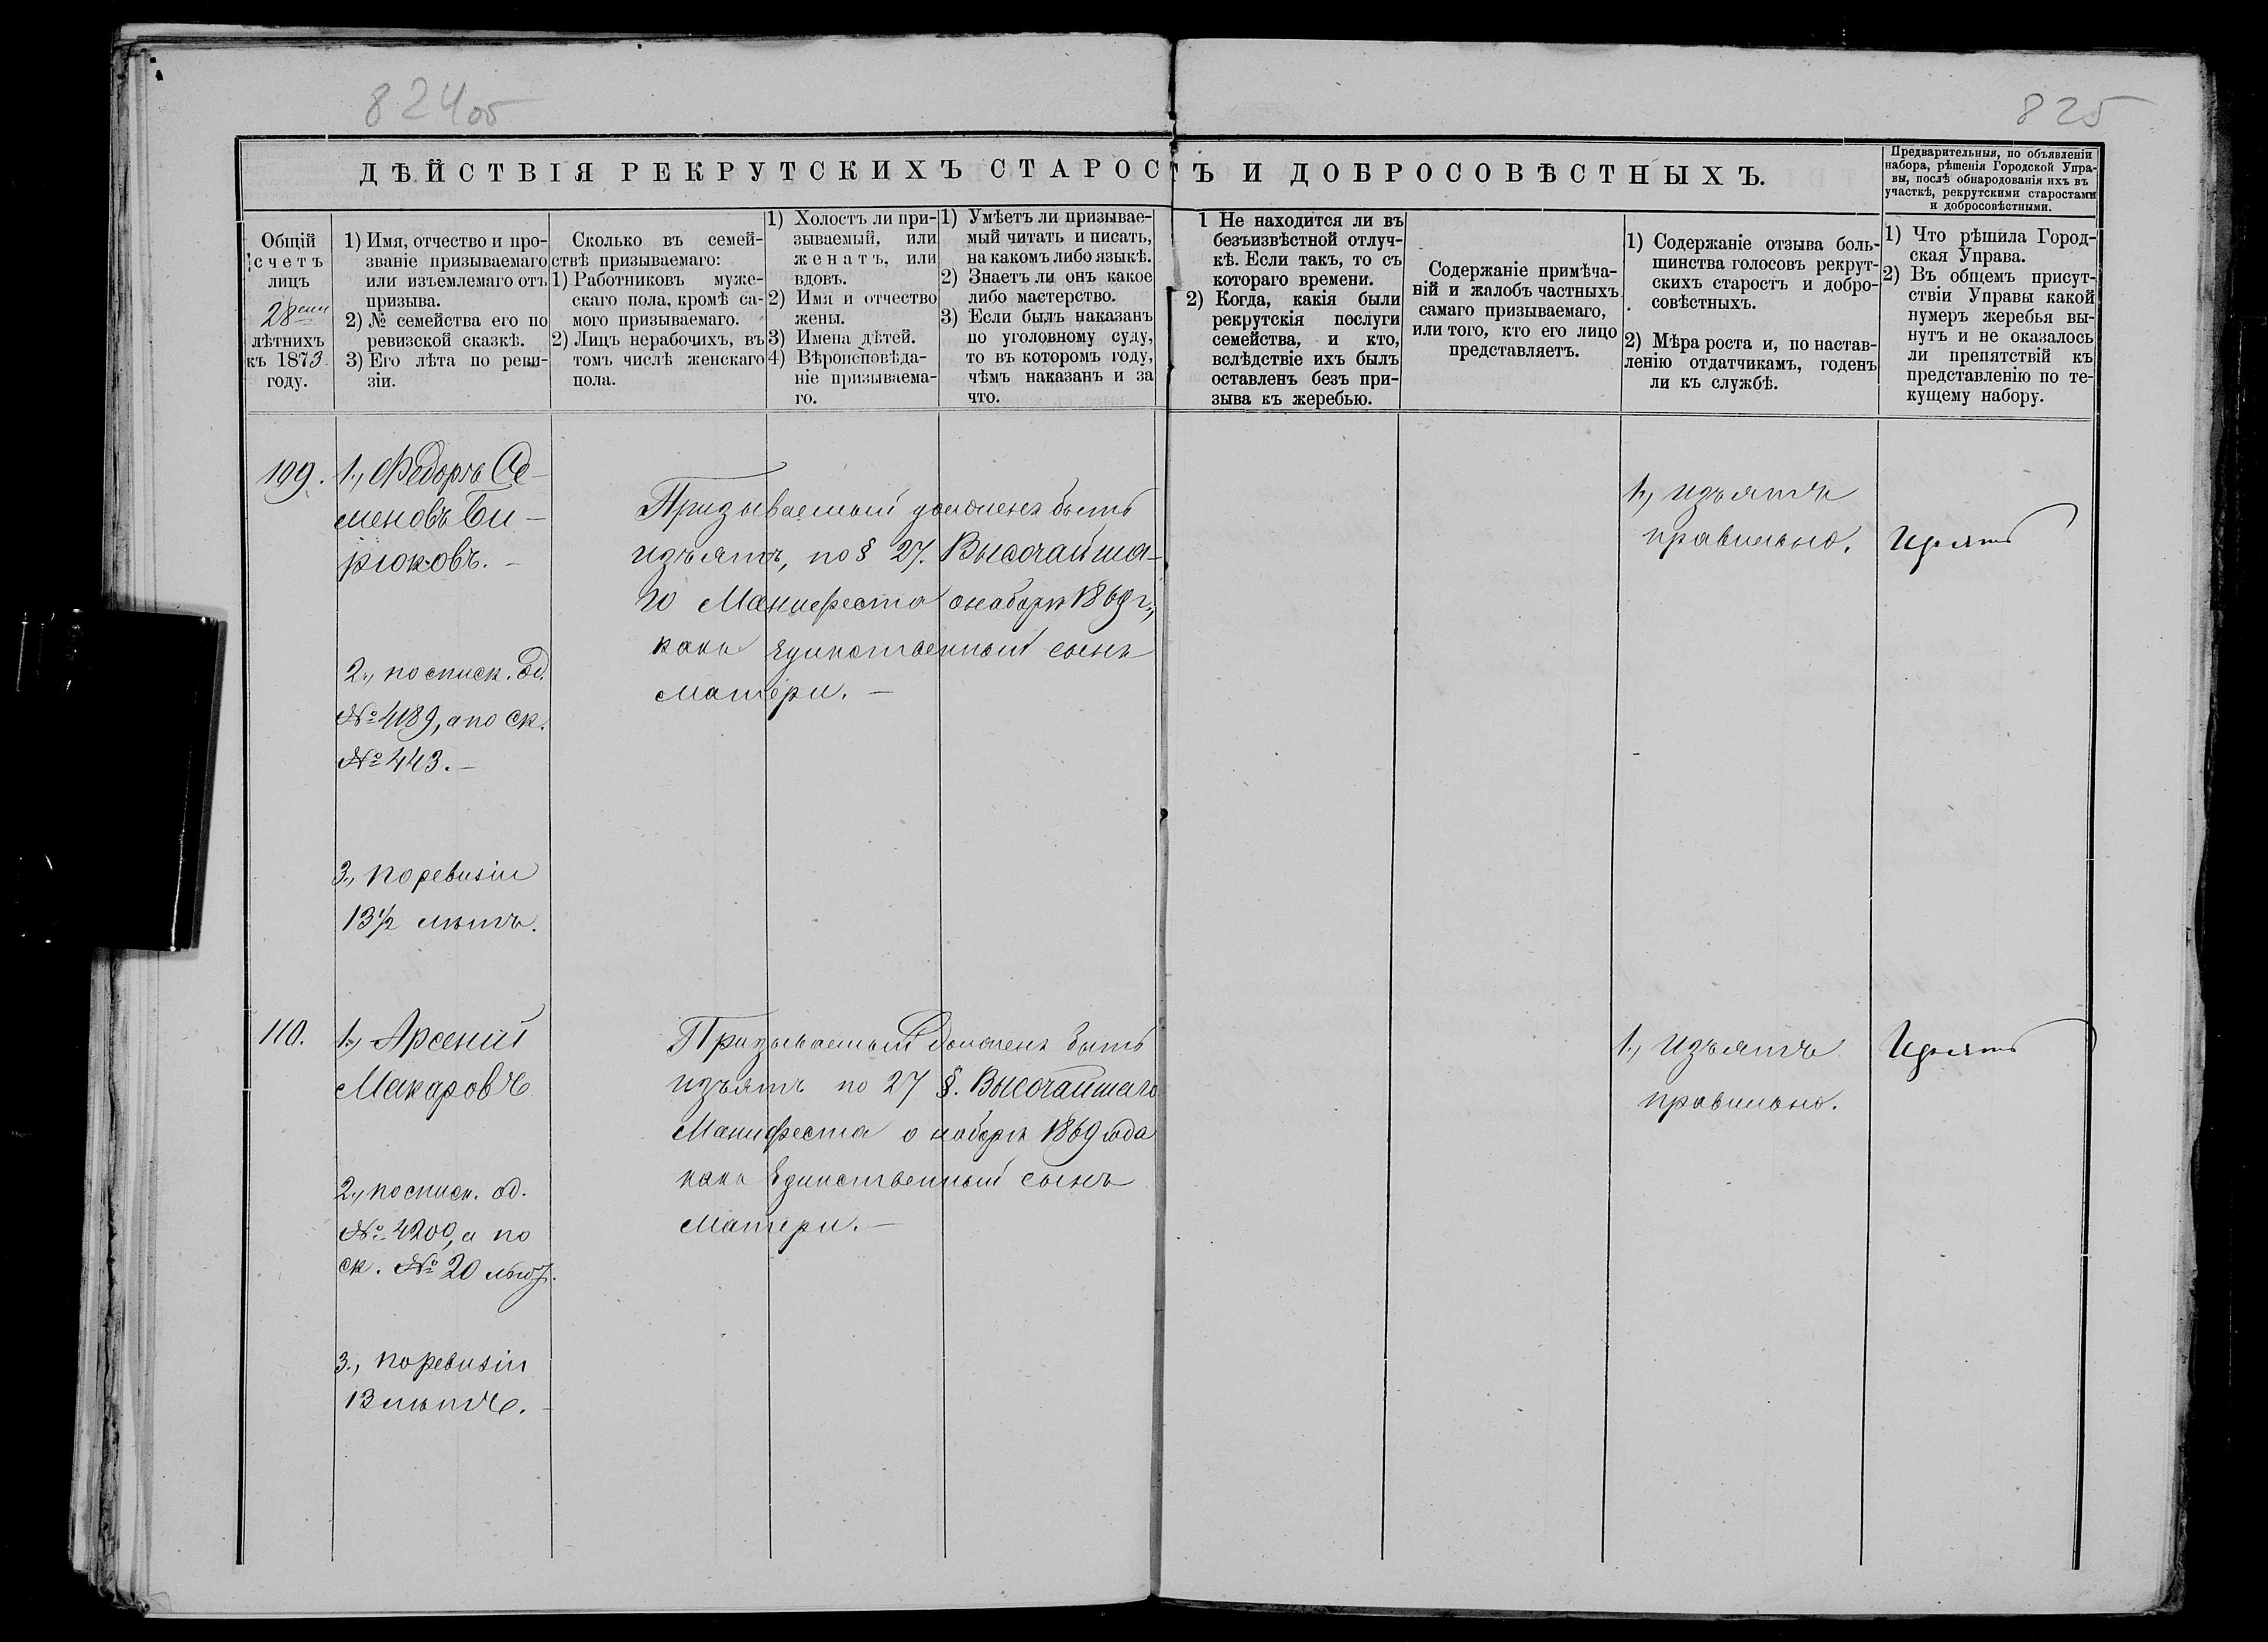 824об
825
ДѢЙСТВІЯ РЕКРУТСКИХЪ СТАРОСТЪ И ДОБРОСОВѢСТНЫХЪ.
Предварительныя, по объявленіи
набора, рѣшенія Городской Упра-
вы, послѣ обнародованія ихъ въ
участкѣ, рекрутскими старостами
и добросовѣстными.
Общій
счетъ
лицъ
28ми
лѣтнихъ
къ 1873
году.
1) Имя, отчество и про-
званіе призываемаго
или изъемлемаго отъ
призыва.
2) № семейства его по
ревизской сказкѣ.
3) Его лѣта по реви-
зіи.
Сколько въ семей-
ствѣ призываемаго:
1) Работниковъ муже-
скаго пола, кромѣ са-
мого призываемаго.
2) Лицъ нерабочихъ, въ
томъ числѣ женскаго
пола.
1) Холостъ ли при-
зываемый, или
женатъ, или
вдовъ.
2) Имя и отчество
жены.
3) Имена дѣтей.
4) Вѣроисповѣда-
ніе призываема-
го.
1) Умѣетъ ли призывае-
мый читать и писать,
на какомъ либо языкѣ.
2) Знаетъ ли онъ какое
либо мастерство.
3) Если былъ наказанъ
по уголовному суду,
то въ которомъ году,
чѣмъ наказанъ и за
что.
1 Не находится ли въ
безъизвѣстной отлуч-
кѣ. Если такъ, то съ
котораго времени.
2) Когда, какія были
рекрутскія послуги
семейства, и кто,
вслѣдствіе ихъ былъ
оставленъ безъ при-
зыва къ жеребью.
Содержаніе примѣча-
ній и жалобъ частныхъ
самаго призываемаго,
или того, кто его лицо
представляетъ.
1) Содержаніе отзыва боль-
шинства голосовъ рекрут-
скихъ старостъ и добро-
совѣстныхъ.
2) Мѣра роста и, по настав-
ленію отдатчикамъ, годенъ
ли къ службѣ.
1) Что рѣшила Город-
ская Управа.
2) Въ общемъ присут-
ствіи Управы какой
нумеръ жеребья вы-
нутъ и не оказалось
ли препятствій къ
представленію по те-
кущему набору.
109.
1., Ѳедоръ Се-
меновъ Би-
рюковъ. –
2., по списк. од.
№ 4189, а по ск.
№ 443. –
3., по ревизіи
13½ лѣтъ.
Призываемый долженъ быть
изъятъ, по § 27. Высочайша-
го Манифеста о наборѣ 1869 г.,
какъ единственный сынъ
матери. –
1., изъятъ
правильно.
Изъять
110.
1., Арсеній
Макаровъ
2., по списк. од.
№ 4200, а по
ск. № 20
3., по ревизіи
13 лѣтъ. –
Призываемый долженъ быть
изъятъ по 27 §. Высочайшаго
Манифеста о наборѣ 1869 года
какъ единственный сынъ
матери. –
1., изъятъ
правильно.
Изъять